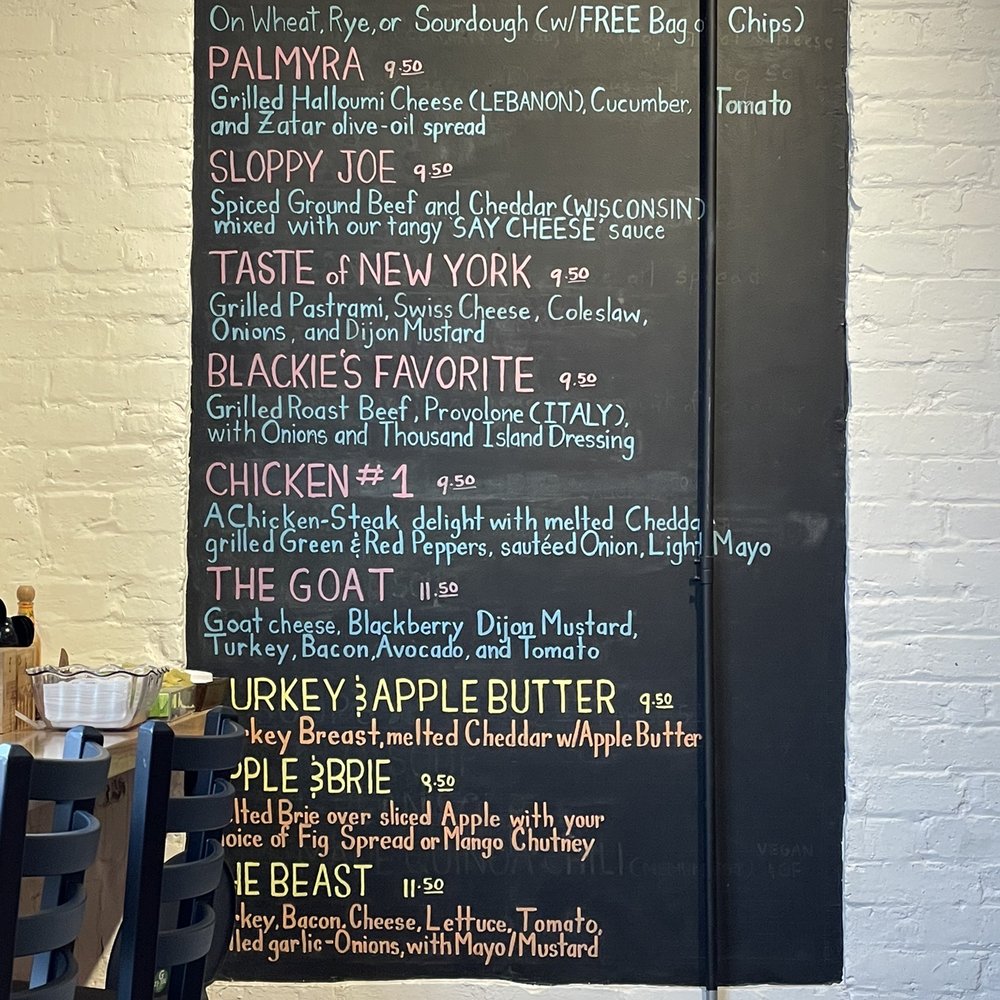 On Wheat, Rye, or Sourdough (w/FREE Bag o Chips)
PALMYRA 9.50
Grilled Halloumi Cheese (LEBANON), Cucumber, Tomato
and Zatar olive-oil spread
SLOPPY JOE 9.50
Spiced Ground Beef and Cheddar (WISCONSIN)
mixed with our tangy 'SAY CHEESE' sauce
TASTE of NEW YORK 9.50
Grilled Pastrami, Swiss Cheese, Coleslaw,
Onions, and Dijon Mustard
BLACKIE'S FAVORITE 9.50
Grilled Roast Beef, Provolone (ITALY),
with Onions and Thousand Island Dressing
CHICKEN #1 9.50
A Chicken-Steak delight with melted Chedda
grilled Green & Red Peppers, sautéed Onion, Light Mayo
THE GOAT 11.50
Goat cheese, Blackberry Dijon Mustard,
Turkey, Bacon, Avocado, and Tomato
URKEY & APPLE BUTTER 9.50
rkey Breast, melted Cheddar w/Apple Butter
PPLE & BRIE 9.50
elted Brie over sliced Apple with your
oice of Fig Spread or Mango Chutney
HE BEAST 11.50
rkey, Bacon, Cheese, Lettuce, Tomato,
lled garlic-Onions, with Mayo/Mustard